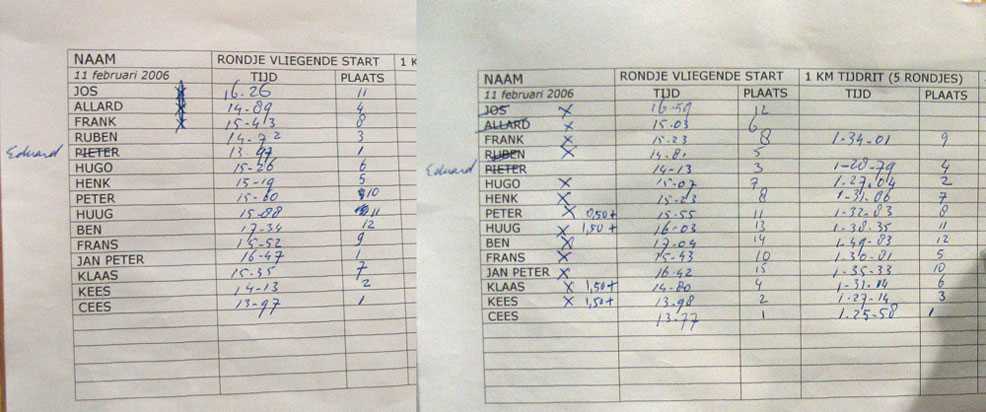 NAAM RONDJE VLIEGENDE START 1 K
11 februari 2006 TIJD PLAATS
JOS 16-26 11
ALLARD 14-89 4
FRANK 15-43 8
RUBEN 14-72 3
Eduard PIETER 1
HUGO 15-26 6
HENK 15-19 5
PETER 15-60 10
HUUG 15-88 11
BEN 17-34 12
FRANS 15-52 9
JAN PETER 16-47 1
KLAAS 15-35 7
KEES 14-13 2
CEES 13-97 1
NAAM RONDJE VLIEGENDE START 1 KM TIJDRIT (5 RONDJES)
11 februari 2006 TIJD PLAATS TIJD PLAATS
JOS X 16-59 12
ALLARD X 15-03 6
FRANK X 15-23 8 1-34-01 9
RUBEN X 5
Eduard PIETER 14-13 3 1-28-79 4
HUGO X 15-07 7 1-27.04 2
HENK X 15-23 8 1-31-06 7
PETER X 0,50+ 15-55 11 1-32-83 8
HUUG X 1,50+ 16-03 13 1-38-35 11
BEN X 17-04 14 1-49-83 12
FRANS X 15-43 10 1-30-81 5
JAN PETER X 16-42 15 1-35-33 10
KLAAS X 1,50+ 14-80 4 1-31-14 6
KEES X 1,50+ 13-98 2 1-27-14 3
CEES 13-77 1 1-25-58 1